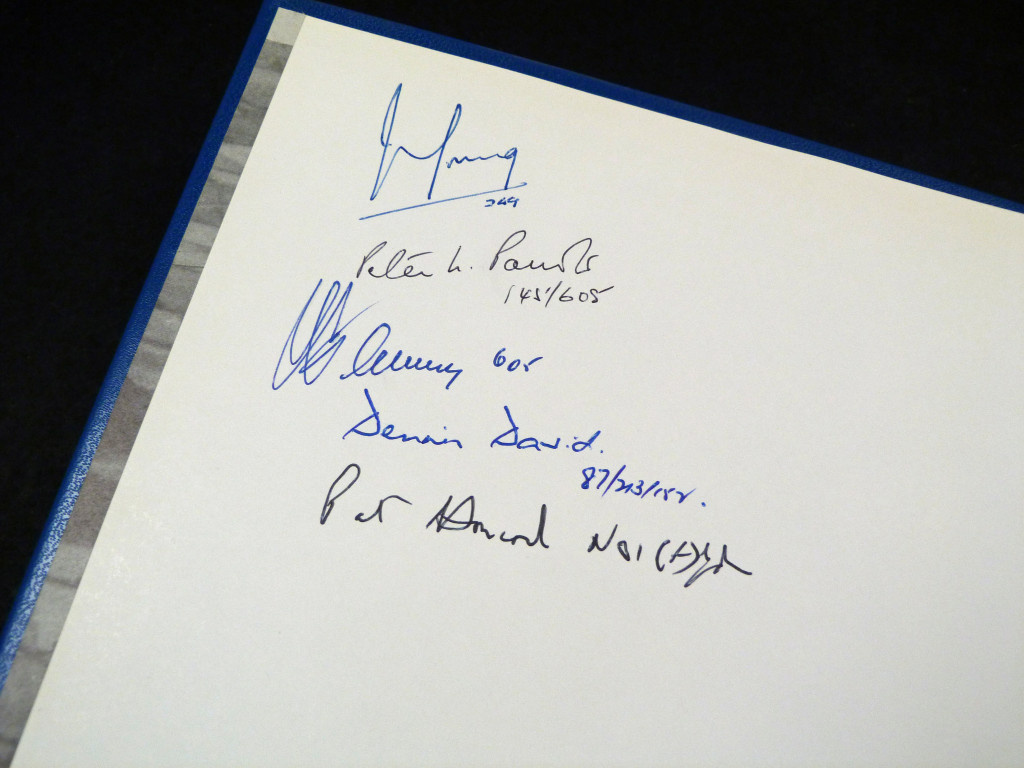 Young
249
Peter L. Parrott
145/605
605
Dennis David.
87/213/152.
Pat Hancock No 1 (F)